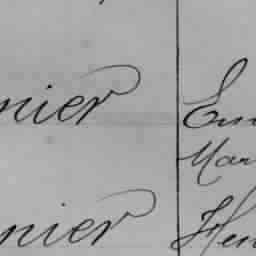 nier Em
Mar
nier Hen